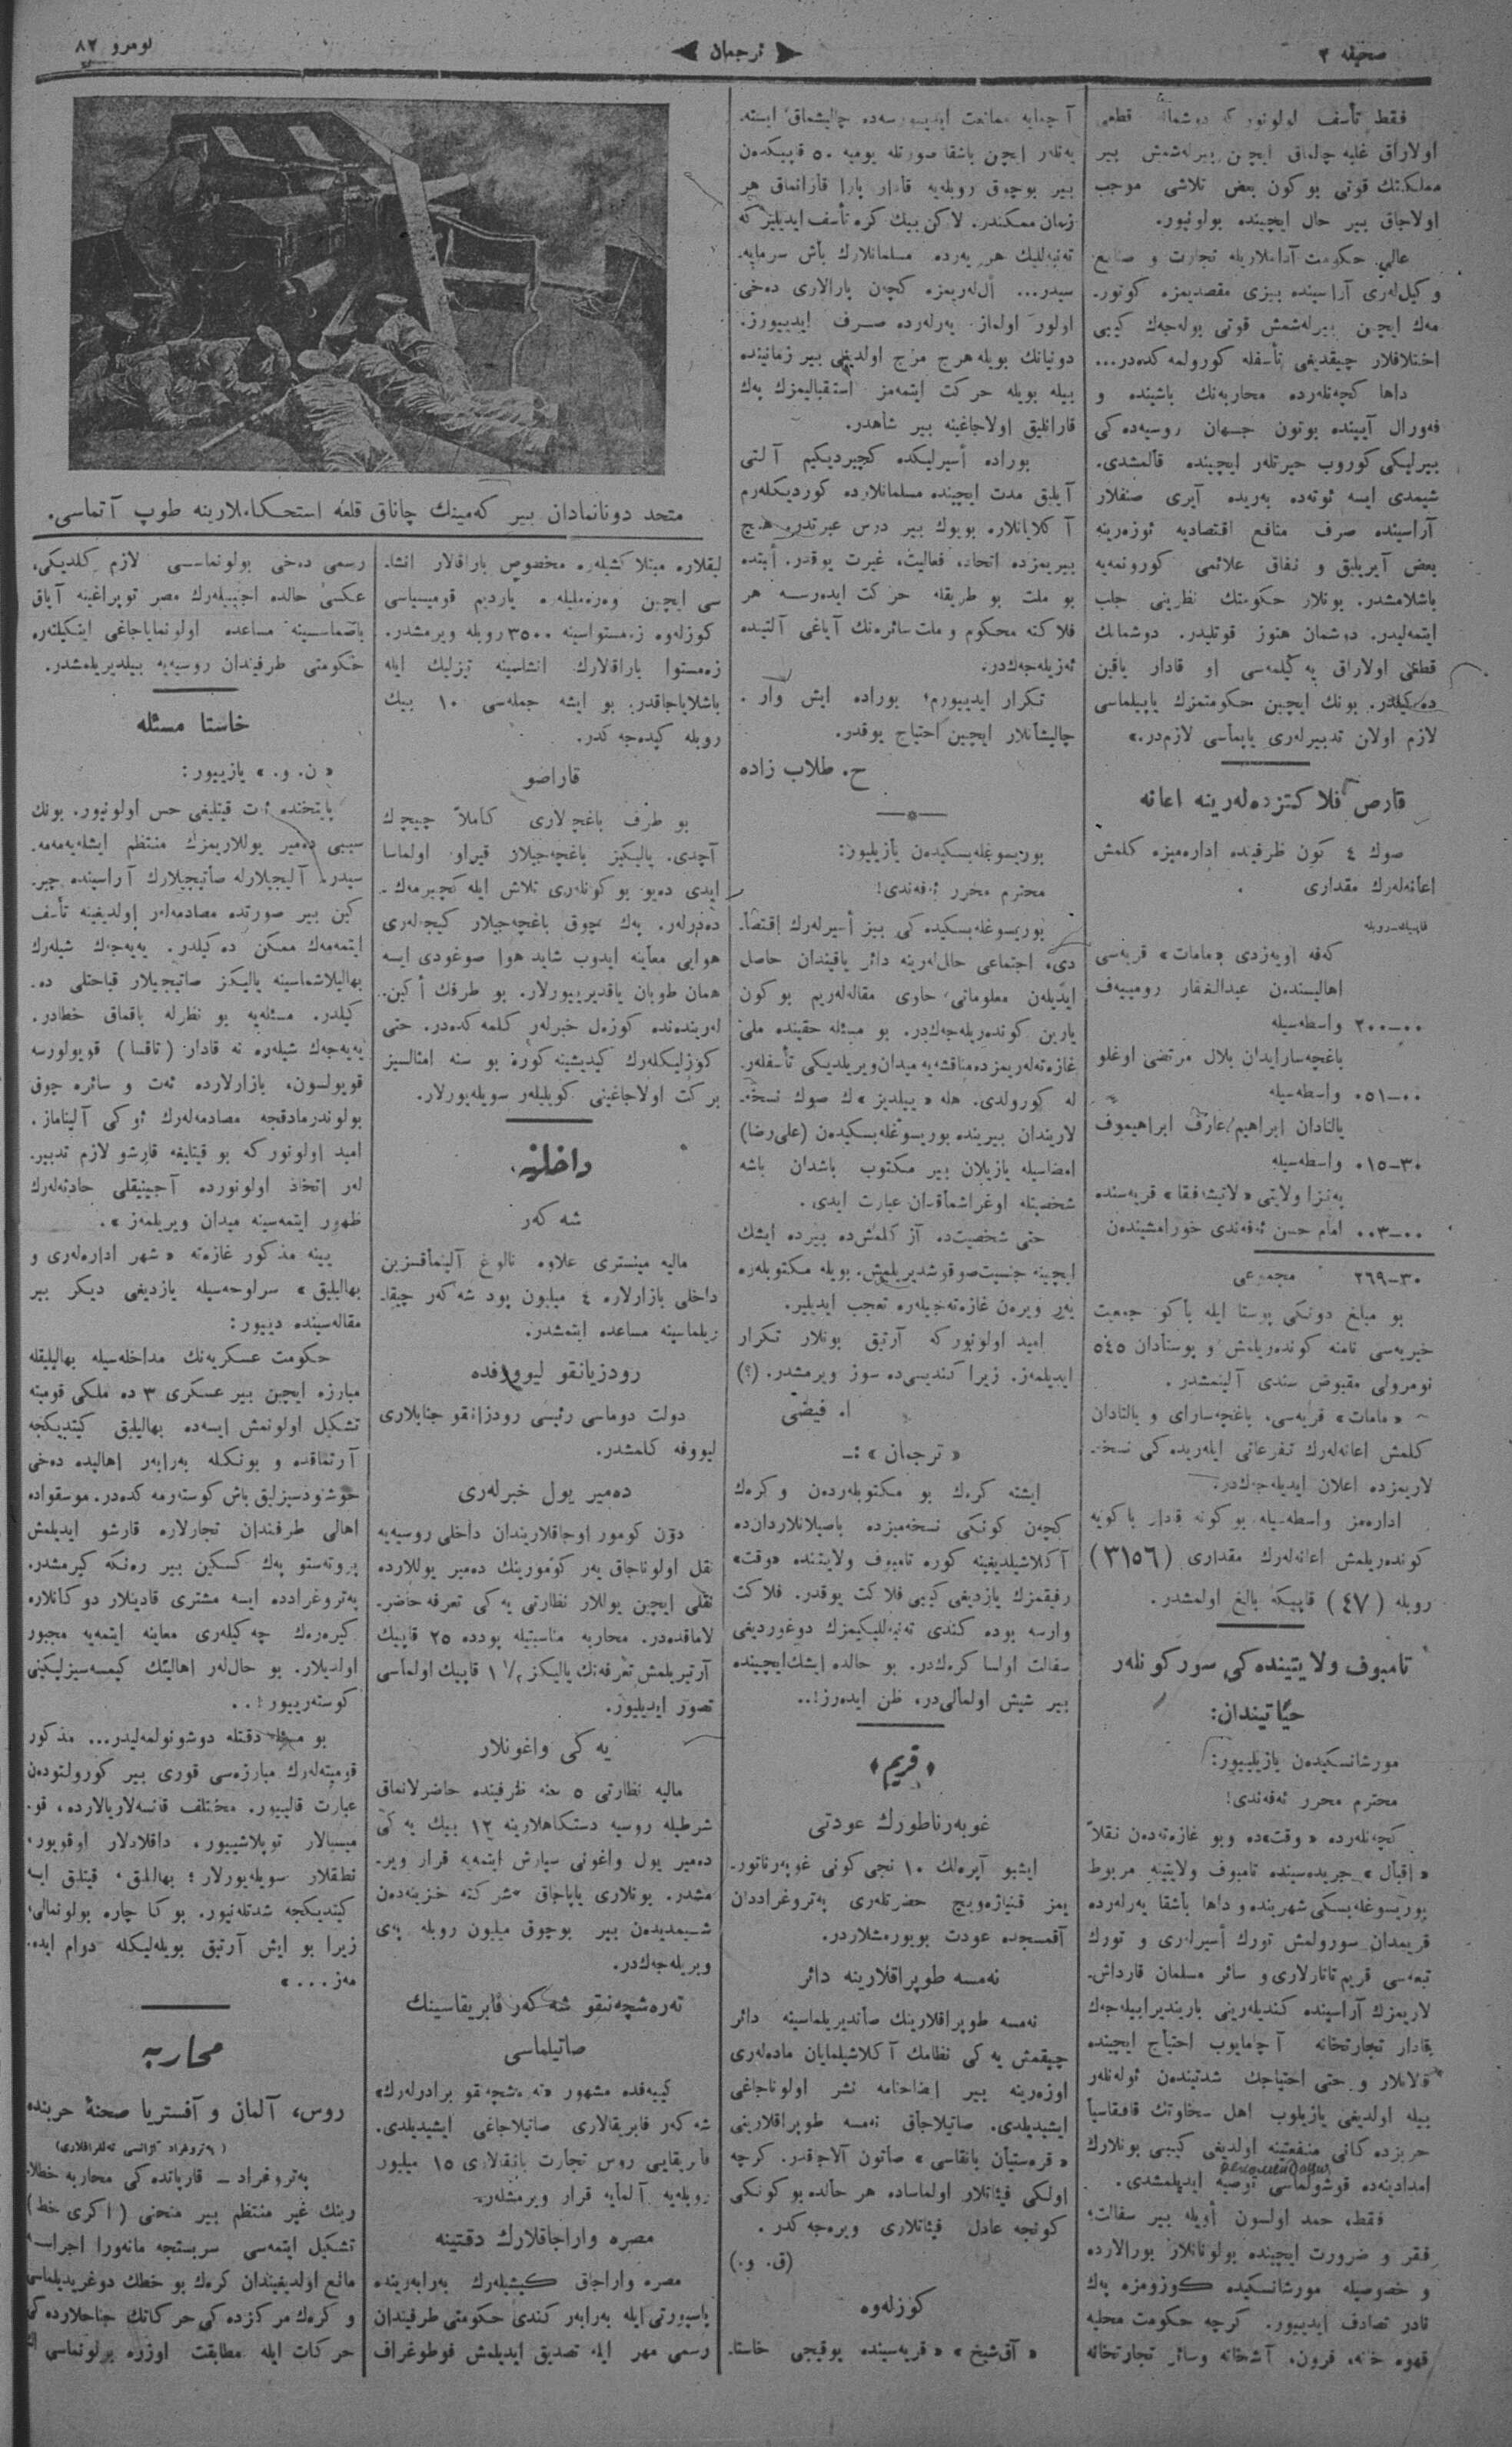 صحیفه ٢
ترجمان
نومرو ٨٢
فقط تأسف اولونور كه دوشمانه قطعی
اولاراق غلبه چالماق ایچین بیرله‌شمش بیر
مملكتك قوتی بو كون بعض تلاشی موجب
اولاجاق بیر حال ایچینده بولونیور.
عالی حكومت آداملاریله تجارت و صنایع
وكیل‌لەری آراسینده بیزی مقصدیمزه كوتور-
مەك ایچین بیرله‌شمش قوتی بوله‌جەك كیبی
اختلافلار چیقدیغی تأسفله كورولمەكدەدر...
داها كچەنلەرده محاربەنك باشینده و
فەورال آیینده بوتون جهان روسیەدەكی
بیرلیكی كوروب حیرتلەر ایچینده قالمشدی.
شیمدی ایسه ئوتەده بەریده آیری صنفلار
آراسینده صرف منافع اقتصادیه ئوزەرینه
بعض آیریلیق و نفاق علائمی كورونمەیه
باشلامشدر. بونلار حكومتك نظرینی جلب
ایتمەلیدر. دوشمان هنوز قوتلیدر. دوشمانك
قطعی اولاراق یەكیلمەسی او قادار یاقین
دەكیلدر. بونك ایچین حكومتمزك یاپیلماسی
لازم اولان تدبیرلەری یاپماسی لازمدر.»
قارص فلاكتزدەلەرینه اعانه
صوك ٤ كون ظرفینده ادارەمیزه كلمش
اعانەلەرك مقداری
قاپیك-روبله
كەفه اویەزدی «مامات» قریەسی
اهالیسندن عبدالغفار رومییەف
٢٠٠-٠٠ واسطەسیله
باغچەسارایدان بلال مرتضی اوغلو
٠٥١-٠٠ واسطەسیله
یالتادان ابراهیم/عارف ابراهیموف
٠١٥-٣٠ واسطەسیله
پەنزا ولایتی قریەسنده
٠٠٣-٠٠ امام حسن ئەفەندی خورامشیندەن
٢٦٩-٣٠ مجموعی
بو مبلغ دونكی پوستا ایله باكو جمعیت
خیریەسی نامنه كوندەریلمش و پوستادان ٥٤٥
نومرولی مقبوض سندی آلینمشدر.
«مامات» قریەسی، باغچەسارای و یالتادان
كلمش اعانەلەرك تفرعاتی ایلەریدەكی نسخه-
لاریمزده اعلان ایدیلەجەكدر.
ادارەمز واسطەسیله بو كونه قادار باكویه
كوندەریلمش اعانەلەرك مقداری (٣١٥٦)
روبله (٤٧) قاپیكه بالغ اولمشدر.
تامبوف ولایتیندەكی سوركونلەر
حیاتیندان:
مورشانسكیدەن یازیلییور:
محترم محرر ئەفەندی!
كچەنلەرده «وقت»ده وبو غازەتەدەن نقلاً
«اقبال» جریدەسینده تامبوف ولایتینه مربوط
بوریسوغلەبسكی شهرینده و داها باشقا یەرلەرده
قریمدان سورولمش تورك أسیرلەری و تورك
تبعەسی قریم تاتارلاری و سائر مسلمان قارداش-
لاریمزك آراسینده كندیلەرینی باریندیرابیلەجەك
قادار تجارتخانه آچامایوب احتیاج ایچینده
قالانلار و حتی احتیاجك شدتیندەن ئولەنلەر
بیله اولدیغی یازیلوب اهل سخاوتك قافقاسیا
حربزدەكانی منفعتینه اولدیغی كیبی بونلارك
рекомендация
امدادینەده قوشولماسی توصیه ایدیلمشدی.
فقط، حمد اولسون أویله بیر سفالت،
فقر و ضرورت ایچینده بولونانلار بورالارده
و خصوصیله مورشانسكیده كوزومزه پەك
نادر تصادف ایدییور. كرچه حكومت محلیه
قهوه خانه، فرون، آشخانه وسائر تجارتخانه
آچمایه ممانعت ایدییورسەده چالیشماق ایسته-
یەنلەر ایچین باشقا صورتله یومیه ٥٠ قاپیكدەن
بیر بوچوق روبلەیه قادار پارا قازانماق هر
زمان ممكندر. لاكن بیك كره تأسف ایدیلیر كه
تەنبەللیك هر یەرده مسلمانلارك باش سرمایه-
سیدر... أل‌لەریمزه كچەن پارالاری دەخی
اولور اولماز یەرلەرده صرف ایدییورز.
دونیانك بویله هرج مرج اولدیغی بیر زمانینده
بیله بویله حركت ایتمەمز استقبالیمزك پەك
قارانلیق اولاجاغینه بیر شاهدر.
بوراده أسیرلیكده كچیردیكیم آلتی
آیلیق مدت ایچینده مسلمانلارده كوردیكلەرم
آكلایانلاره بویوك بیر درس عبرتدر. هیچ
بیریمزده اتحاد، فعالیت، غیرت یوقدر. أبتده
بو ملت بو طریقله حركت ایدەرسه هر
فلاكته محكوم و ملت سائرەنك آیاغی آلتینده
ئەزیلەجەكدر.
تكرار ایدییورم؛ بوراده ایش وار.
چالیشانلار ایچین احتیاج یوقدر.
ح. طلاب زاده
بوریسوغلەبسكیدەن یازیلیور:
محترم محرر ئەفەندی!
بوریسوغلەبسكیدەكی بیز أسیرلەرك اقتصا-
دی، اجتماعی حال‌لەرینه دائر یاقیندان حاصل
ایدیلەن معلوماتی حاوی مقالەلەریم بو كون
یارین كوندەریلەجەكدر. بو مسئله حقینده ملی
غازەتەلەریمزده مناقشەیه میدان ویریلدیكی تأسفلەر-
له كورولدی. هله «ییلدیز»ك صوك نسخه-
لاریندان بیرینده بوریسوغلەبسكیدەن (علی رضا)
امضاسیله یازیلان بیر مكتوب باشدان باشه
شخصیتله اوغراشماقدان عبارت ایدی.
حتی شخصیت‌ده آز كلمش‌ده بیرده ایشك
ایچینه جنسیت صوقوشدیریلمش. بویله مكتوبلەره
یەر ویرەن غازەتەجیلەره تعجب ایدیلیر.
امید اولونیور كه آرتیق بونلار تكرار
ایدیلمەز. زیرا كندیسی‌ده سوز ویرمشدر. (؟)
ا. فیضی
«ترجمان»:-
ایشته كرەك بو مكتوبلەردەن و كرەك
كچەن كونكی نسخەمیزده باصیلانلاردان‌ده
آكلاشیلدیغینه كوره تامبوف ولایتنده «وقت»
رفیقمزك یازدیغی كیبی فلاكت یوقدر. فلاكت
وارسه بوده كندی تەنبەللیكیمزك دوغوردیغی
سفالت اولسا كرەكدر. بو حالده ایشك ایچینده
بیر شیش اولمالی‌در، ظن ایدەرز!..
«قریم»
غوبەرناطورك عودتی
ایشبو آپرەلك ١٠ نجی كونی غوبەرناتور-
یمز قنیاژەویچ حضرتلەری پەتروغراددان
آقمسجده عودت بویورمشلاردر.
نەمسه طوپراقلارینه دائر
نەمسه طوپراقلارینك صاتدیریلماسینه دائر
چیقمش یەكی نظامك آكلاشیلمایان مادەلەری
اوزەرینه بیر ایضاحنامه نشر اولوناجاغی
ایشیدیلدی. صاتیلاجاق نەمسه طوپراقلارینی
«قرەستیان بانقاسی» صاتون آلاجقدر. كرچه
اولكی فیئاتلار اولماساده هر حالده بو كونكی
كونجه عادل فیئاتلاری ویرەجەكدر.
(ق. و.)
كوزلەوه
«آق شیخ» قریەسینده یوقیجی خاستا-
متحد دونانمادان بیر كەمینك چاناق قلعه استحكاملارینه طوپ آتماسی.
لیقلاره مبتلا كشیلەره مخصوص باراقالار انشا-
سی ایچین وەزەمیلیه یاردیم قومیسیاسی
كوزلەوه زەمستواسینه ٣٥٠٠ روبله ویرمشدر.
زەمستوا باراقالارك انشاسینه تیزلیك ایله
باشلایاجاقدر. بو ایشه جملەسی ١٠ بیك
روبله كیدەجەكدر.
قاراصو
بو طرف باغچالاری كاملاً چیچك
آچدی. یالیكیز باغچەجیلار قیراو اولماسا
ایدی دەیو بو كونلەری تلاش ایله كچیرمەك-
دەدرلەر. پەك چوق باغچەجیلار كیجەلەری
هوایی معاینه ایدوب شاید هوا صوغودی ایسه
همان طومان یاقدیرییورلار. بو طرفك أكین-
لەریندەنده كوزەل خبرلەر كلمەكدەدر. حتی
كوزلیكلەرك كیدیشینه كوره بو سنه امثالسیز
بركت اولاجاغینی كویلیلەر سویلەیورلار.
داخلیه
شەكەر
مالیه مینستری علاوه نالوغ آلینماقسزین
داخلی بازارلاره ٤ میلیون پود شەكەر چیقا-
ریلماسینه مساعده ایتمشدر.
رودزیانقو لیووفده
دولت دوماسی رئیسی رودزیانقو جنابلاری
لیووفه كلمشدر.
دەمیر یول خبرلەری
دون كومور اوجاقلاریندان داخلی روسیەیه
نقل اولوناجاق یەر كومورینك دەمیر یوللارده
نقلی ایچین یوللار نظارتی یەكی تعرفه حاضر-
لاماقدەدر. محاربه مناسبتیله پودده ٢٥ قاپیك
آرتیریلمش تعرفەنك یالیكز ١ ١/٢ قاپیك اولماسی
تصور ایدیلیور.
یەكی واغونلار
مالیه نظارتی ٥ سنه ظرفینده حاضرلانماق
شرطیله روسیه دستكاهلارینه ١٢ بیك یەكی
دەمیر یول واغونی سپارش ایتمەیه قرار ویر-
مشدر. بونلاری یاپاجاق شركته خزینەدەن
شیمدیدەن بیر بوچوق میلیون روبله پەی
ویریلەجەكدر.
تەرەشچەنقو شەكەر فابریقاسینك
صاتیلماسی
كییەفده مشهور «تەرەشچەنقو برادرلەرك»
شەكەر فابریقالاری صاتیلاجاغی ایشیدیلدی.
فابریقایی روس تجارت بانقالاری ١٥ میلیون
روبلەیه آلمایه قرار ویرمشلەر.
مصره واراجاقلارك دقتینه
مصره واراجاق كیشیلەرك بەرابەرینده
پاسپورتی ایله بەرابەر كندی حكومتی طرفیندان
رسمی مهر ایله تصدیق ایدیلمش فوطوغراف
رسمی دەخی بولونماسی لازم كلدیكی،
عكسی حالده اجنبیلەرك مصر توپراغینه آیاق
باصماسینه مساعده اولونمایاجاغی اینكیلتەره
حكومتی طرفیندان روسیەیه بیلدیریلمشدر.
خاستا مسئله
«ن. و.» یازییور:
پایتختده ئەت قیتلیغی حس اولونیور. بونك
سببی دەمیر یوللاریمزك منتظم ایشلەیەمەمە-
سیدر. آلیجیلارله صاتیجیلارك آراسینده چیر-
كین بیر صورتده مصادمەلەر اولدیغینه تأسف
ایتمەمەك ممكن دەكیلدر. یەیەجەك شیلەرك
بهالیلاشماسینه یالیكز صاتیجیلار قباحتلی دە-
كیلدر. مسئلەیه بو نظرله باقماق خطادر.
یەیەجەك شیلەره نه قادار (تاقسا) قویولورسه
قویولسون، بازارلارده ئەت و سائره چوق
بولوندرمادقجه مصادمەلەرك ئوكی آلیناماز.
امید اولونور كه بو قیتلیغه قارشو لازم تدبیر-
لەر اتخاذ اولونورده آجینیقلی حادثەلەرك
ظهور ایتمەسینه میدان ویریلمەز».
یینه مذكور غازەته «شهر ادارەلەری و
بهالیلیق» سرلوحەسیله یازدیغی دیكر بیر
مقالەسینده دییور:
حكومت عسكریەنك مداخلەسیله بهالیلیقله
مبارزه ایچین بیر عسكری ٣ ده ملكی قومیته
تشكیل اولونمش ایسەده بهالیلیق كیتدیكچه
آرتماقده و بونكله بەرابەر اهالیده دەخی
خوشنودسیزلیق باش كوستەرمەكدەدر. موسقواده
اهالی طرفیندان تجارلاره قارشو ایدیلمش
پروتەستو پەك كسكین بیر رەنكه كیرمشدر.
پەتروغرادده ایسه مشتری قادینلار دوكانلاره
كیرەرەك چەكیلەری معاینه ایتمەیه مجبور
اولدیلار. بو حال‌لەر اهالینك كیمسەسیزلیكینی
كوستەرییور!..
بو مسئله دقتله دوشونولمەلیدر... مذكور
قومیتەلەرك مبارزەسی قوری بیر كورولتودەن
عبارت قالییور. مختلف قانسەلاریالارده، قو-
میسیالار توپلاشییور، داقلادلار اوقویور،
نطقلار سویلەیورلار؛ بهالیلق، قیتلق ایسه
كیتدیكجه شدتلەنیور. بوكا چاره بولونمالی،
زیرا بو ایش آرتیق بویلەلیكله دوام ایدە-
مەز...»
محاربه
روس، آلمان و آفستریا صحنهٔ حربنده
(پەتروغراد آژانسی تەلغرافلاری)
پەتروغراد ــ قارپاتدەكی محاربه خطلا-
رینك غیر منتظم بیر منحنی (اكری خط)
تشكیل ایتمەسی سربستجه مانەورا اجراسنه
مانع اولدیغیندان كرەك بو خطك دوغریدیلماسی
و كرەك مركزدەكی حركاتك جناحلاردەكی
حركات ایله مطابقت اوزره بولونماسی